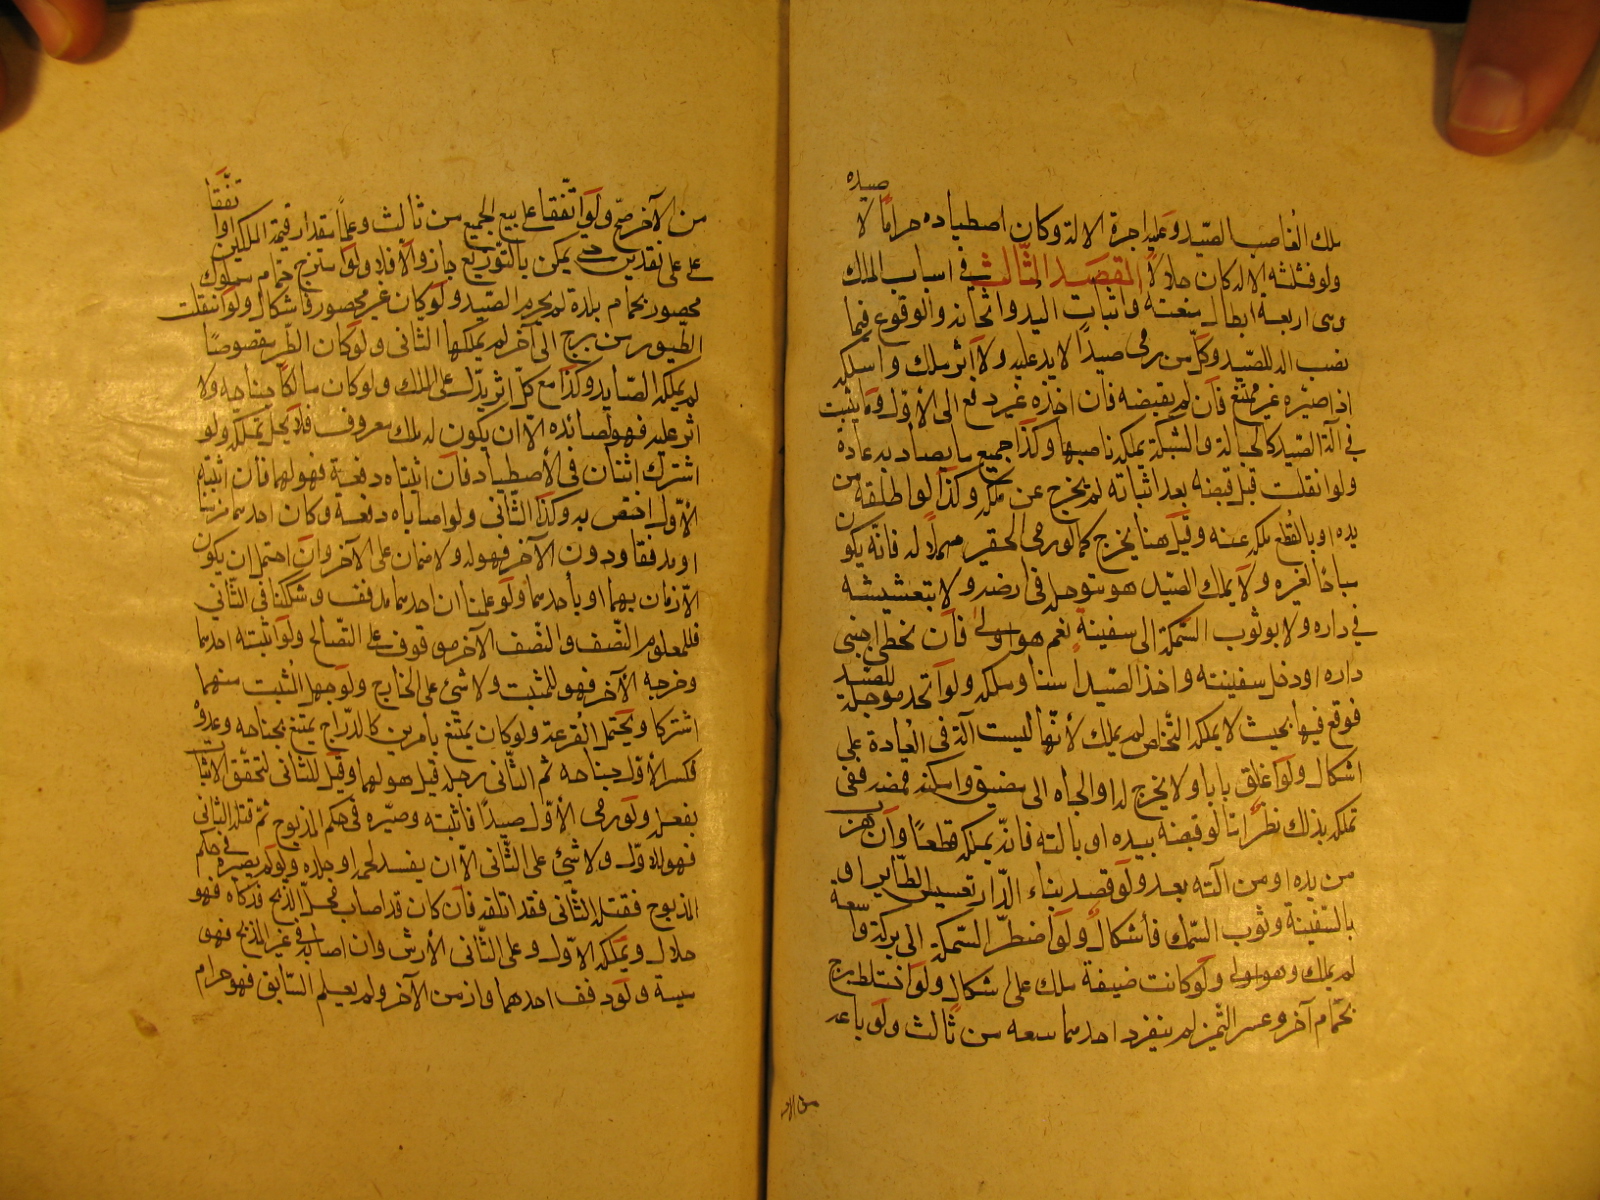 صيده
ملك الغاصب الصّيد وعليه اجرة الالة وكان اصطياده حرامًا لا
المقصد الثّالث في اسباب الملك
وهي اربعة ابطال منعته واثبات اليد واثخانه والوقوع فيما
نصب الة للصّيد وكلّ من رمى صيدًا لا يد عليه ولا اثر ملك
اذا صيّره غير ممتنع فان لم يقبضه فان اخذه غيره دفع الى الأوّل وما يثبت
في آلة الصّيد كالحبالة والشبكة يملكه ناصبها وكذا جميع ما يصاد به عادة
ولو انفلت قبل قبضه بعد اثباته لم يخرج عن ملكه وكذا لو اطلقه من
يده او بالقطع ملكه عنه وقيل هنا يخرج كما لو رمى الحقير مهملًا له فانّه يكون
مباحًا لغيره ولا يملك الصّيد بتوحله في ارضه ولا بتعشيشه
في داره ولا بوثوب السّمكة الى سفينة نعم هو اولى فان تخطى اجنبي
داره او دخل سفينته واخذ الصّيد اساء وملكه ولو اتّخذ موحلة للصّيد
فوقع فيها بحيث لا يملكه التّخلص لم يملك لأنّها ليست آلة في العادة على
اشكال ولو اغلق بابا ولا يخرج له او الجاه الى مضيق وامكنه قبضه ففي
تملكه بذلك نظر امّا لو قبضه بيده او بالته فانّه يملكه قطعًا وان هرب
من يده او من آلته بعد ولو قصد ببناء الدّار تعشيش الطّاير او
بالسّفينة وثوب السّمك فأشكال ولو اضطرّ السّمكة الى بركة واسعة
لم يملك وهو اولى ولو كانت ضيقة ملك على اشكال ولو اختلط برج
بحمام آخر وعسر التّميز لم ينفرد احدهما ببيعه من ثالث ولو باعه
من الآخر
تّفقا
من الآخر صحّ ولو اتّفقا على بيع الجميع من ثالث وعلما بمقدار قيمة الملكين او ا
على نقدين حتى يمكن بالتّوزيع جاز والّا فلا ولو امتزج حمام مملوك
محصور بحمام بلدة لم يحرم الصّيد ولو كان غير محصور فاشكال ولو انتقلت
الطّيور من برج الى آخر لم يملكها الثّاني ولو كان الطّير مقصوصًا
لم يملكه الصّايد وكذا مع كلّ اثر يدّل على الملك ولو كان مالكًا جناحه ولا
اثر عليه فهو لصائده الّا ان يكون له مالك معروف فلا يحلّ تملكه ولو
اشترك اثنان في الأصطياد فان اثبتاه دفعة فهو لهما فان اثبته
الأوّل اختص به وكذا الثّاني ولو اصاباه دفعة وكان احدهما مزمنا
او مدففا ودون الآخر فهو له ولا ضمان على الآخر وان احتمل ان يكون
الأزمان بهما او بأحدهما ولو علمنا ان احدهما مدفف وشككنا في الثّاني
فللمعلوم النّصف والنّصف الآخر موقوف على التّصالح ولو اثبته احدهما
وجرحه الآخر فهو للمثبت ولا شئ على الجارح ولو جهل المثبت منهما
اشتركا ويحتمل القرعة ولو كان يمتنع بأمرين كالدّراج يمتنع بجناحه وعدوه
فكسر الأوّل جناحه ثم الثّاني رجله قيل هو لهما وقيل للثّاني لتحقّق الاثبات
بفعله ولو رمى الأوّل صيدًا فاثبته وصيّره في حكم المذبوح ثمّ قتله الثّاني
فهو للاوّل ولا شئ على الثّاني الّا ان يفسد لحمه او جلده ولو لم يصيره في حكم
المذبوح فقتله الثّاني فقد اتلفه فان كان قد اصاب محلّ الذّبح فذكاه فهو
حلال ويملكه الاوّل وعلى الثّاني الأرش وان اصابه في غير المذبح فهو
ميتة ولو دفف احدهما وازمن الآخر ولم يعلم السّابق فهو حرام